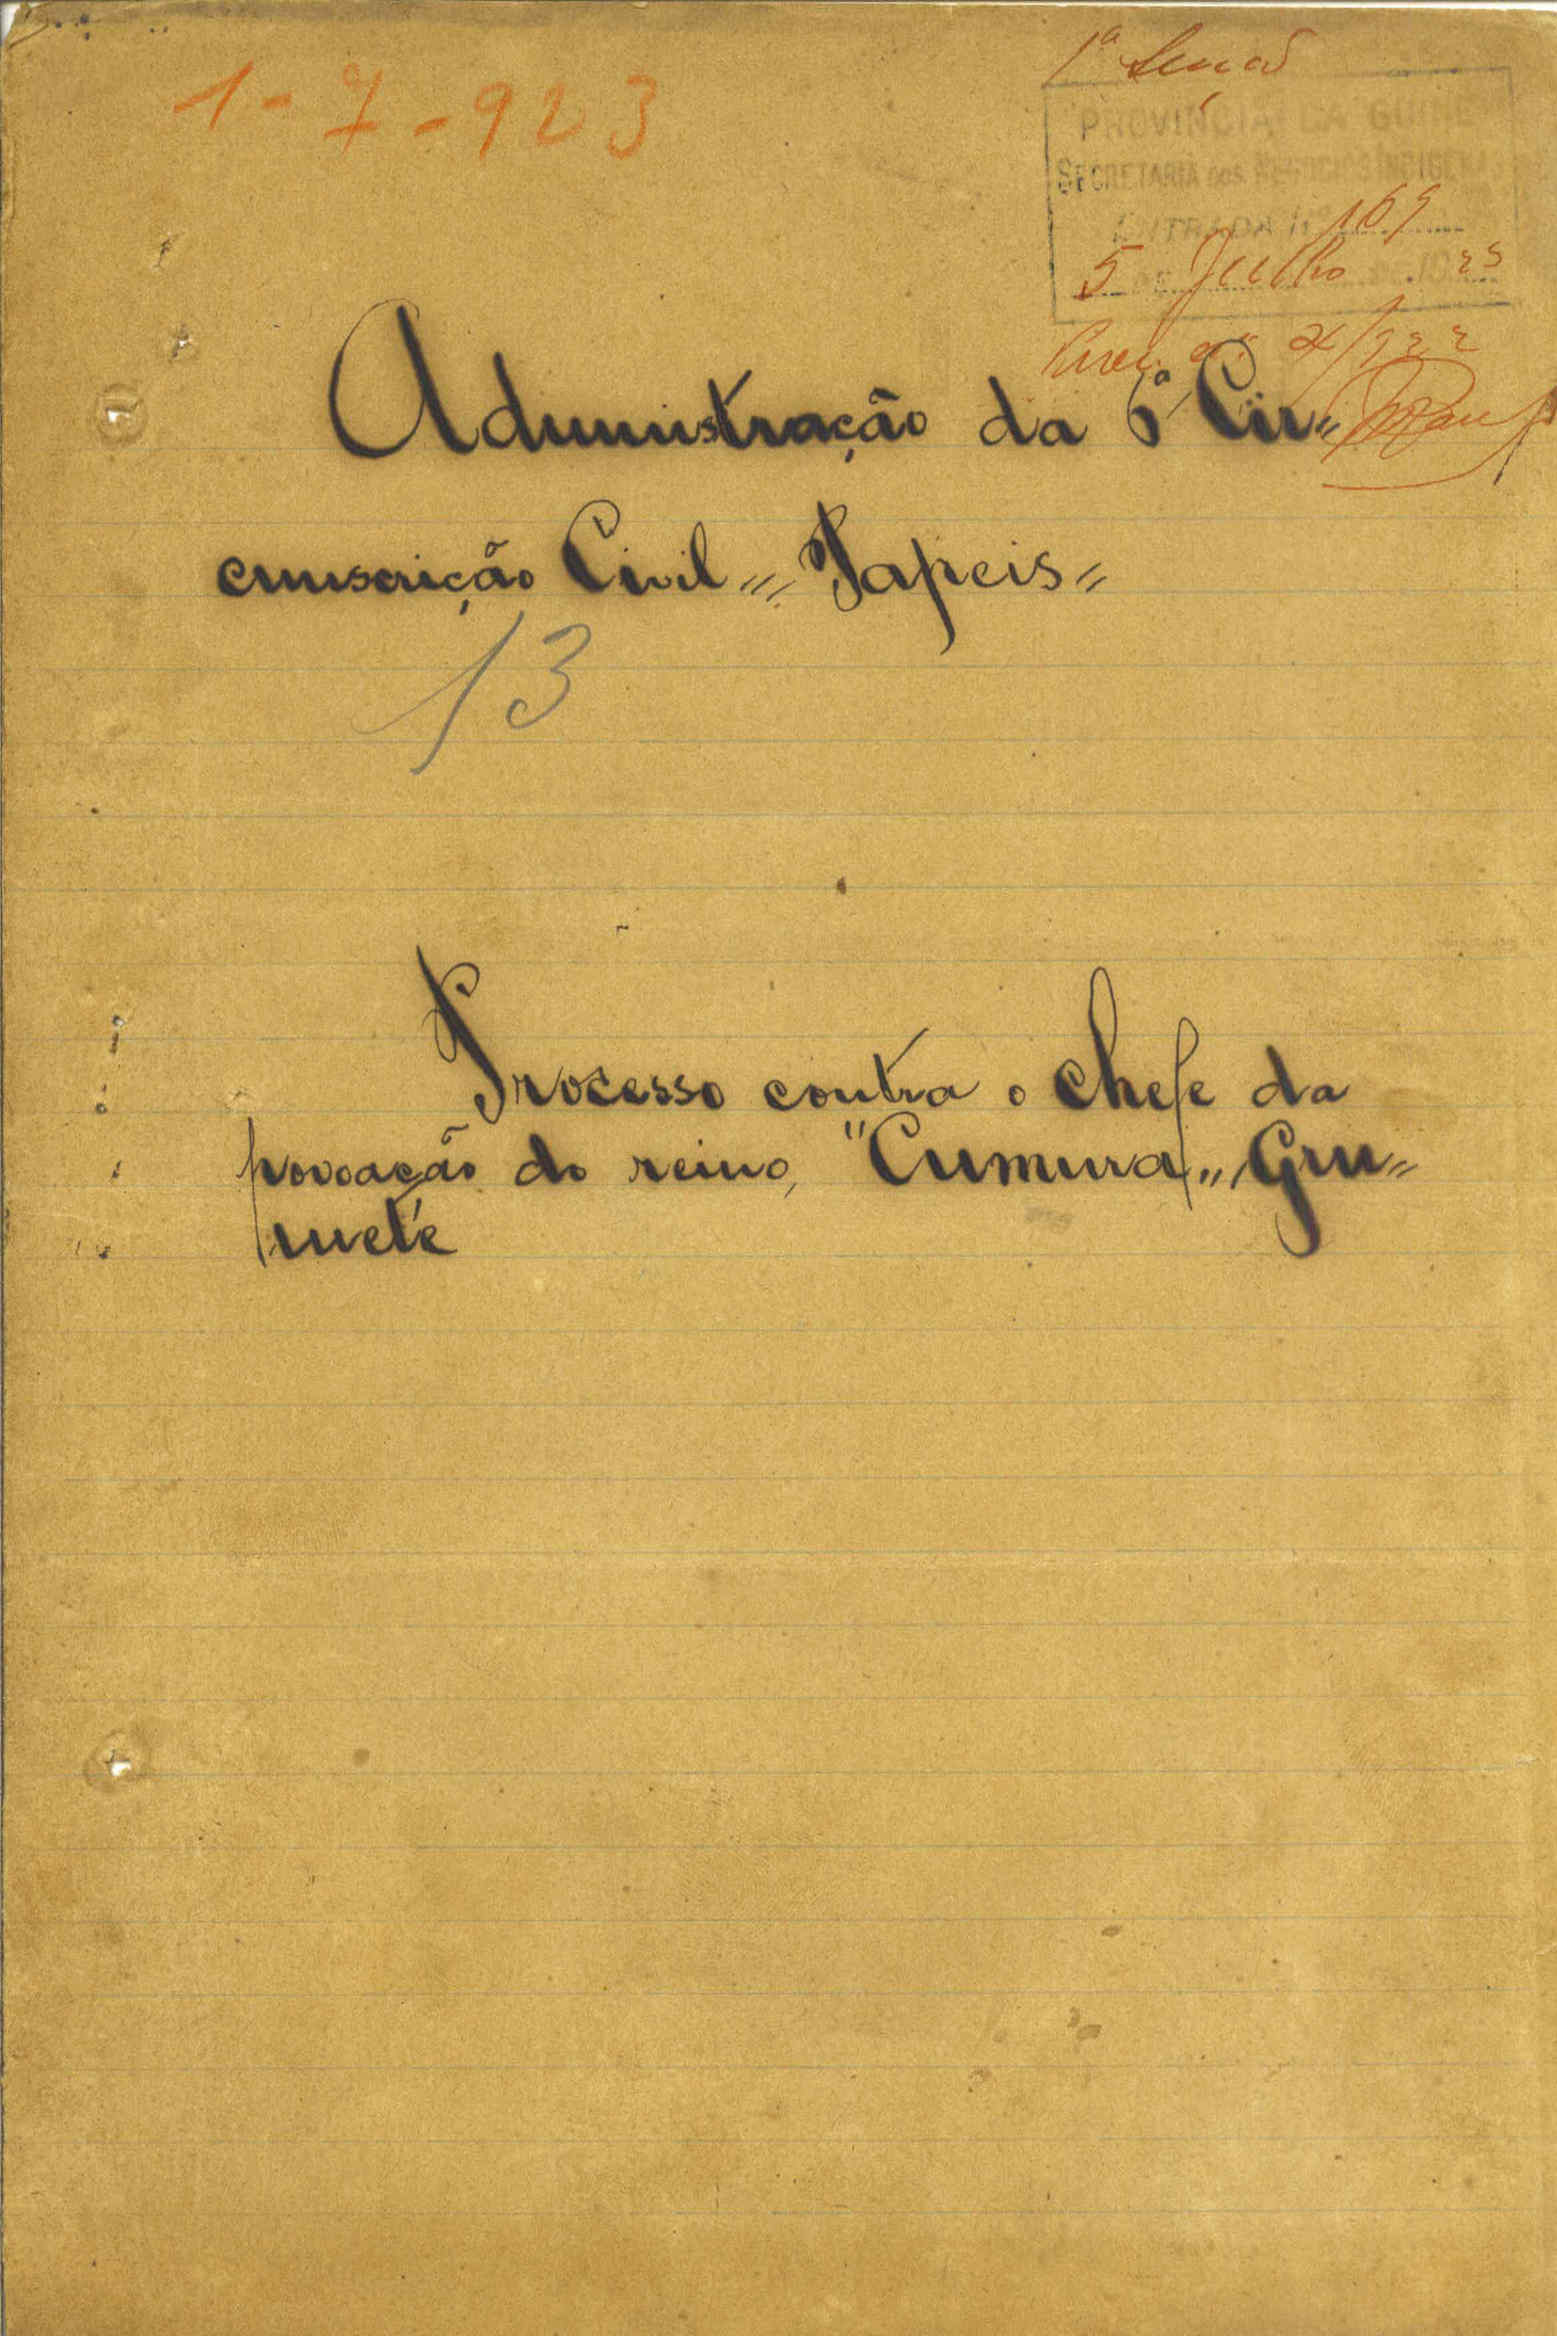 1-7-923
1ª
PROVÍNCIA DA GUINÉ
SECRETARIA DOS NEGOCIOS INDIGENAS
ENTRADA Nº 169
5 DE Julho DE 1923
Administração da 6ª Cir〃
cunscrição Civil 〃 Papeis 〃
13
Processo contra o chefe da
povoação do reino, "Cumura„, Gru〃
mete